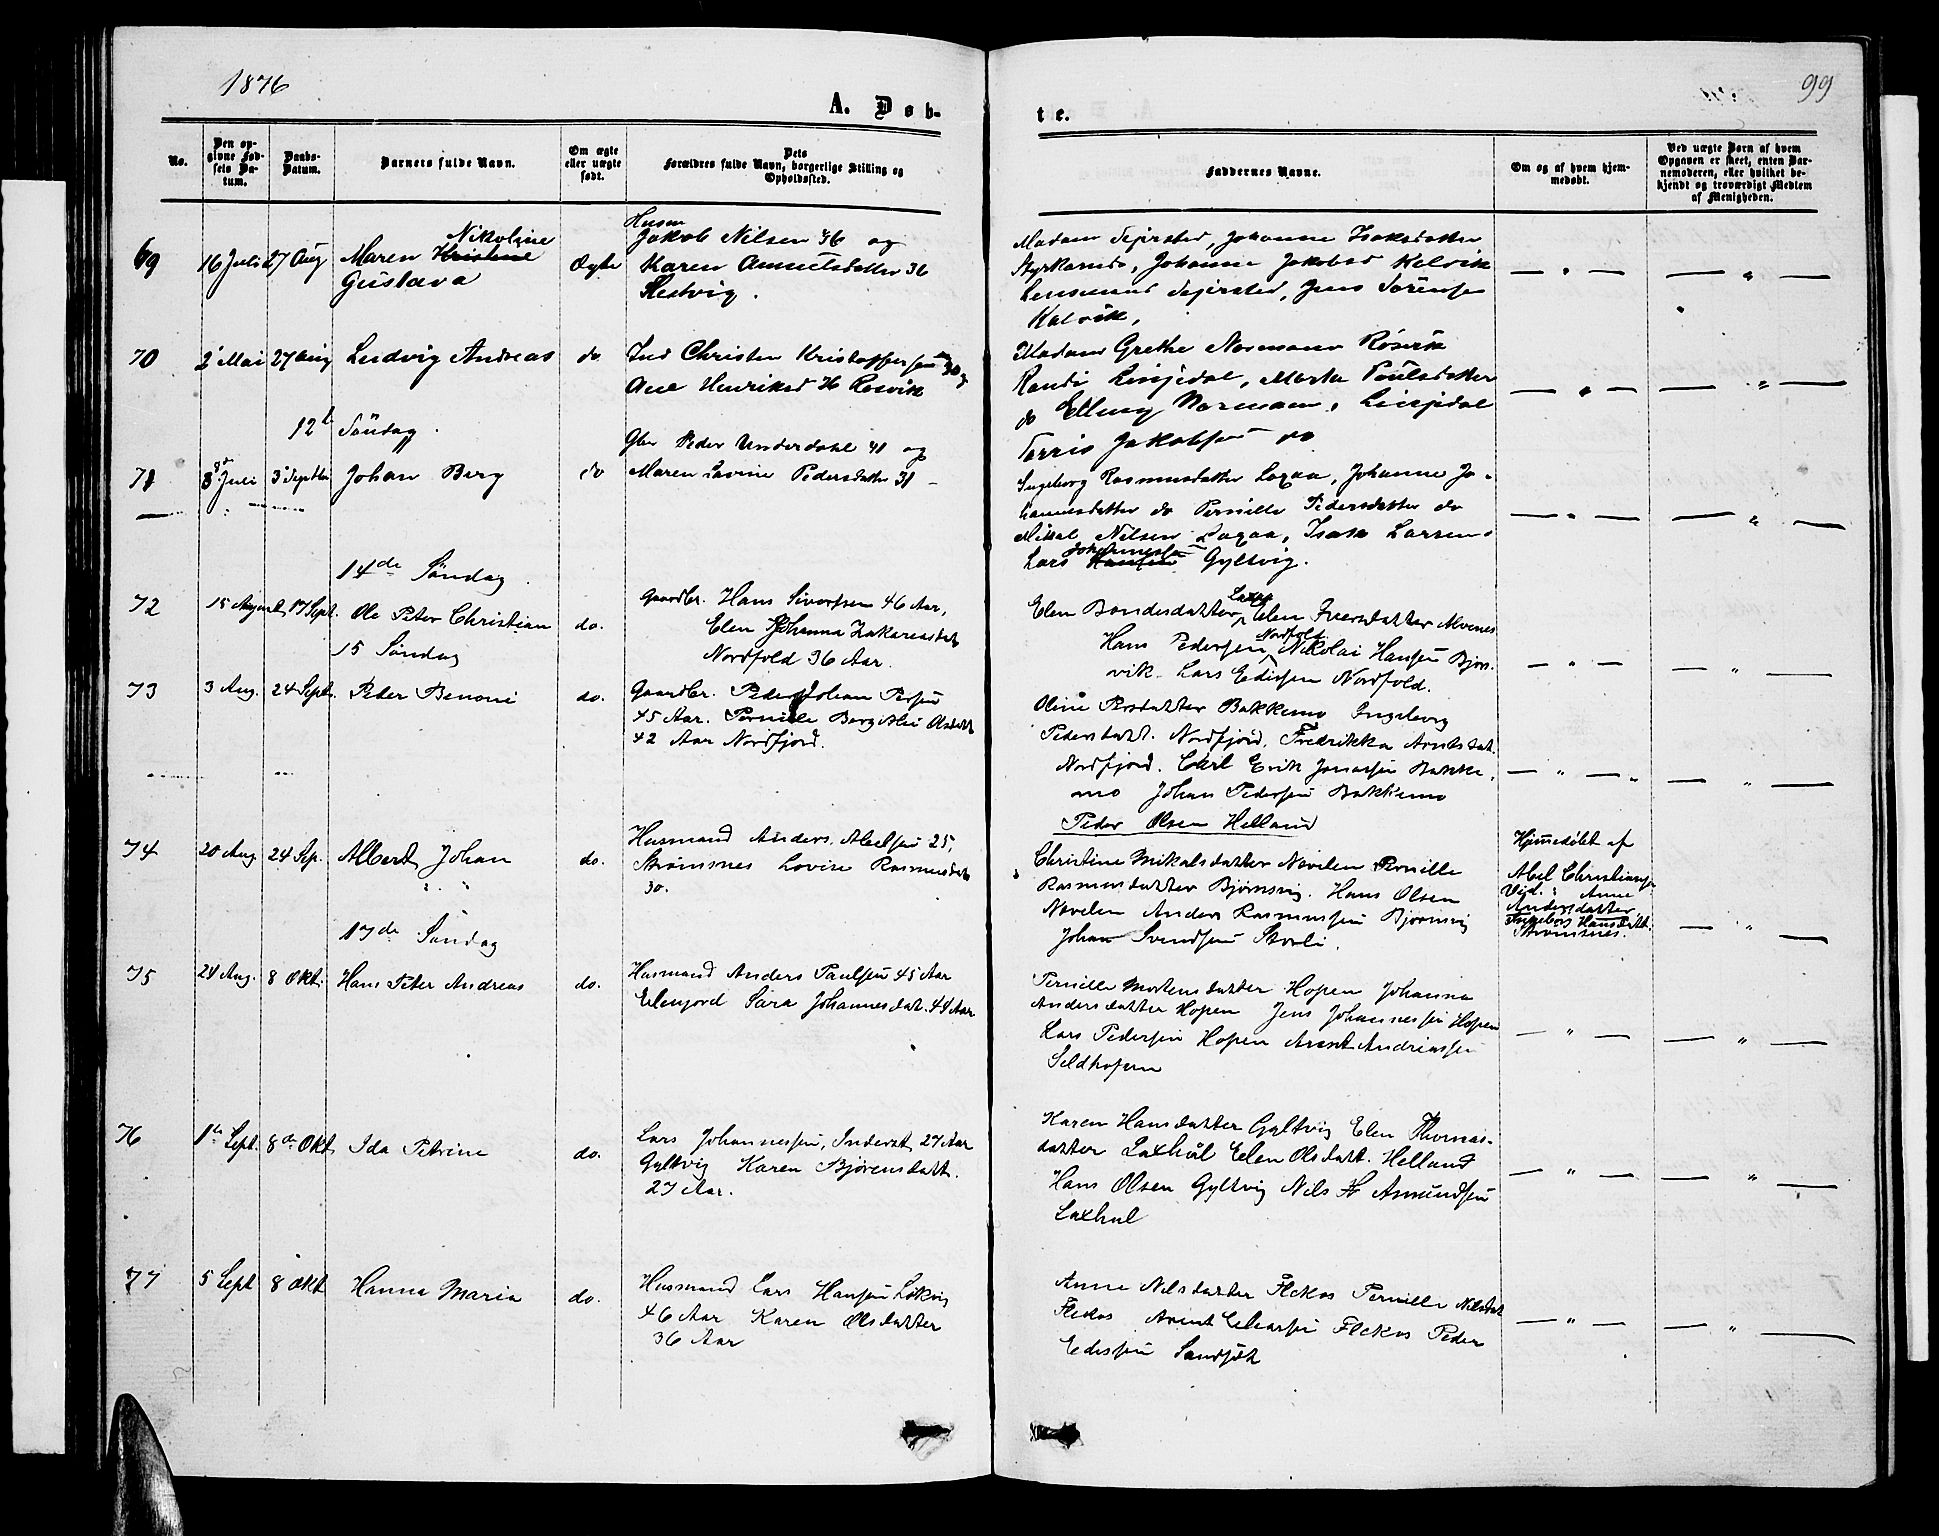 1876
99
A. Døb-
te.
No.
Den op-
givne Fød-
sels Da-
tum.
Daabs-
Datum.
Barnets fulde Navn.
Om ægte
eller uægte
født.
Dets
Forældres fulde Navn, borgerlige Stilling og
Opholdssted.
Faddernes Navne.
Om og af hvem hjem-
medøbt.
Ved uægte Børn af hvem
Opgaven er skeet, enten Bar-
nemoderen, eller hvilket be-
kjendt og troværdigt Medlem
af Menigheden.
69
16 Juli
27 Aug
Nikoline
Maren Kristine
Gustava
Ægte
Jakob Nilsen 36 og
Karen 36
Madam Johanne Isaksdatter
Johanne Jakobsd Kalvik
Lensmand Jens Sørensen
Kalvik,
— " —
— " —
70
2 Mai
27 Aug
Ludvig Andreas
do
Ind Christen Kristoffersen
Ane Henriksd Røsvik
Madam Grethe Normann Røsvik
Randi Linjedal, Marta Poulsdatter
do Elling Normann, Linjedal
Torris Jakobsen do
— " —
— " —
12te Søndag.
71
8de Juli
3 Septbr
Johan Berg
do
Gbr Peder Underdahl 41 og
Maren Lavine Pedersdatter 31 —
Ingeborg Rasmusdatter Laxaa, Johanne Jo-
hannesdatter do Pernille Pedersdatter do
Mikal Nilsen Laxaa, Isak Larsen
Johannessen
Lars Hansen Gyltvig.
— " —
— " —
14de Søndag.
72
15 August
17 Sept.
Ole Peter Christian
do.
Gaardbr. Hans Sivertsen 46 Aar,
Elen Johanna Zakariasdat
Nordfold 36 Aar.
Elen Bendesdatter, Elen Iversdatter Movnes
Nordfold
Hans Pedersen, Nikolai Hansen Bjørn-
vik. Lars Edissen Nordfold.
— " —
— " —
15 Søndag
73
3 Aug.
24 Sept.
Peder Benoni
do.
Gaardbr. Peder Johan Persen
45 Aar. Pernille Olsdatt
42 Aar Nordfjord.
Oline Persdatter Bakkemo Ingeborg
Pedersdatt. Nordfjord, Fredrikka Arntsdat.
Nordfjord. Carl Erik Jonassen Bakke-
mo Johan Pedersen Bakkemo
Peder Olsen Helland
— " — "
— " —
74
20 Aug.
24 Sep.
Albert Johan
do.
Husmand Anders Abelsen 25,
Strømsnes Lovise Rasmusdat
30.
Christine Mikalsdatter Nevelen Pernille
Rasmusdatter Bjørnsvig. Hans Olsen
Nevelen Anders Rasmussen Bjørnsvig
Johan Svendsen Storli.
Hjemmedøbt af
Abel Christiansen
Vid. Anne
Andersdatter
Ingeborg Hansdatt.
Strømsnes.
— " —
17de Søndag
75
24 Aug.
8 Okt.
Hans Peter Andreas
do.
Husmand Anders Paulsen 45 Aar
Elvenfjord Sara Johannesdat. 44 Aar
Pernille Mortensdatter Hopen Johanna
Andersdatter Hopen Jens Johannessen Hopen
Lars Pedersen Hopen Arent Andreassen
Seldhopen
— " —
— " —
76
1te Sept.
8de Okt
Ida Petrine
do.
Lars Johannessen, Inderst, 27 Aar
Gyltvig Karen Bjørensdatt.
27 Aar.
Karen Hansdatter Gyltvig Elen Thomas-
datter Laxhøl Elen Olsdatt. Helland
Hans Olsen Gyltvig Nils H Amundsen
Laxhul
— " —
— " —
77
5 Sept
8 Okt
Hanna Maria
do.
Husmand Lars Hansen Løkvig
46 Aar Karen Olsdatter
36 Aar
Anne Nilsdatter Flekos Pernille Nilsdat
Flekos Arent Eliassen Flekos Peder
Edissen Sandjøt
— " —
— " —